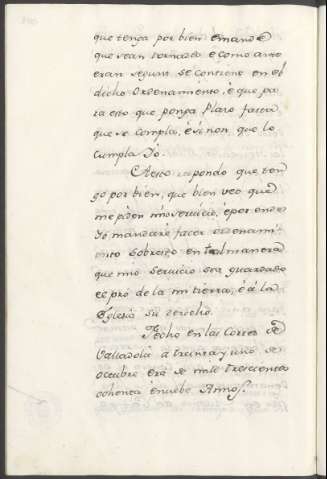 que tenga por bien è mande
que sean tornados è como ante
eran segunt se contiene en el
dicho Ordenamiento, è que pa
ra esto que ponga Plazo fasta
que se compla, è si non que lo
cumpla Yo.
A esto respondo que ten
go por bien, que bien veo que
me piden mio servicio, è por ende
Yo mandarè facer ordenami
ento sobre esto en tal manera
que mio servicio sea guardado
è el prò de la mi tierra, è à la
Eglesia su derecho.
Fecho en las Cortes de
Valladolid à treinta y uno de
Octubre era de mill trescientos
ochenta è nuebe Annos.